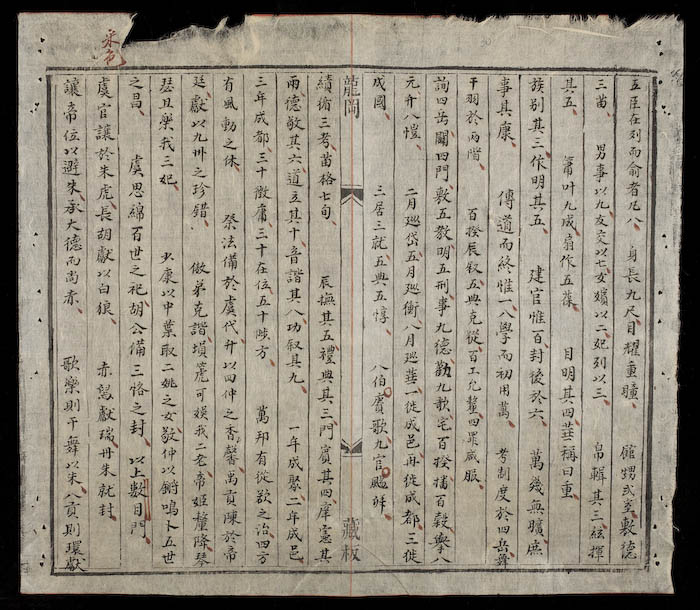 五臣在列而俞者九八　身長九尺目耀重瞳　館甥弍室敷德
三苗　男事以九友交以七女嬪以二妃列以三　帛輯其三絃揮
其五　簫叶九成扇作五葆　目明其四華稱曰重
族別其三作明其五　建官惟百封後於六　萬幾無曠庶
事其康　傳道而終惟一八學而初用萬　考制度於四岳舞
干羽於兩階　百揆辰叙五典克從百工允釐四罪咸服
詢四岳闢四門敷五教明五刑事九德勸九歌宅百揆播百穀舉八
元升八愷　二月巡岱五月巡衡八月巡華一徙成邑再徙成都三徙
成國　三居三就五典五惇　八伯賡歌九官賜
龍岡　藏板
績循三考苗格七旬　辰撫其五禮典其三門賓其四岸憲其
兩德敬其六道立其十音諧其八功叙其九　一年成聚二年成邑
三年成都三十徵庸三十在位五十陟方　萬邦有從欲之治四方
有風動之休　祭法備於虞代升以四仲之香馨禹貢陳於帝
廷獻以九州之珍錯　傲弟克諧塤箎可娱我二老帝姬釐降琴
瑟且樂我二妃　少康以中葉取二姚之女敬仲以鏘鳴卜五世
之昌　虞思綿百世之祀胡公備三恪之封　以上數目門
采色
虞官讓於朱虎長胡獻以白狼　赤鳥獻瑞丹朱就封
讓帝位以避朱承大德而尚赤　歌樂則干舞以朱八貢則環獻